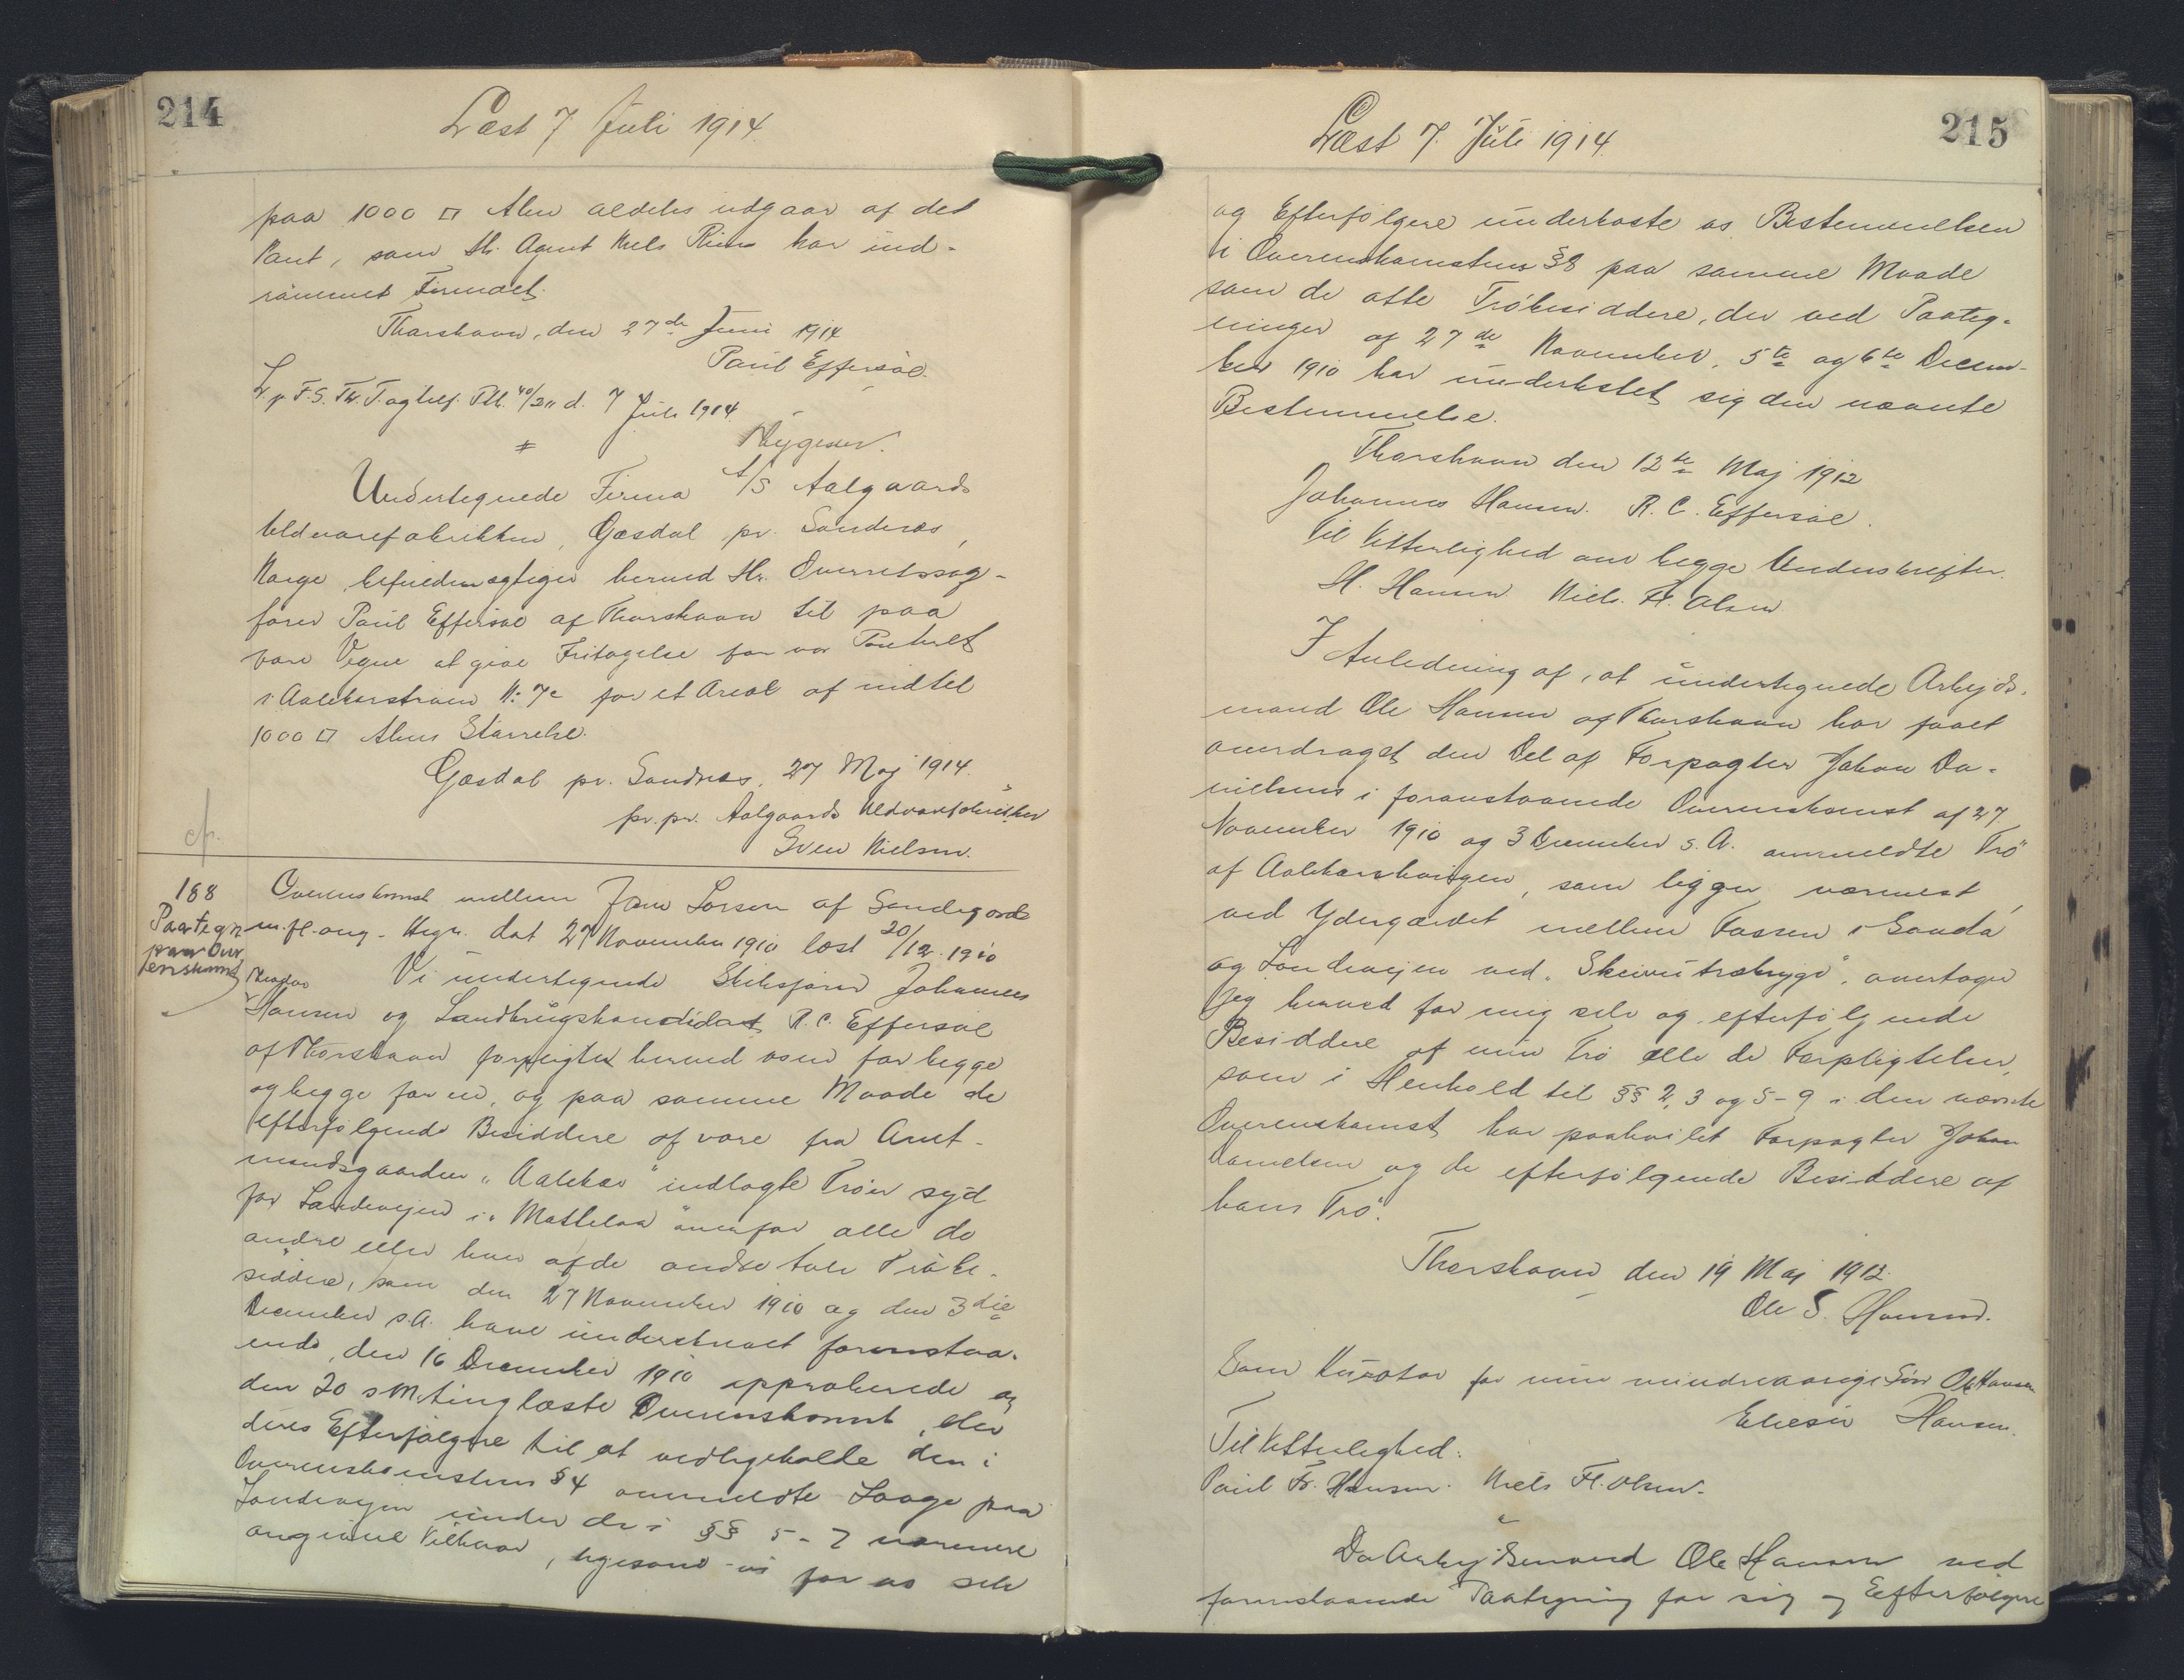 214
Læst 7 Juli 1914.
paa 1000 □ Alen aldeles udgaar af det
Pant, som Hr. Agent Niels  har ind-
rømmet Firmaet.
Thorshavn, den 27de Juni 1914
Paul Effersøe.
L. p. F.S. Th. T. og  Pbl. d. 7 Juli 1914.

Undertegnede Firma A/S Aalgaards
Uldvarefabrikker, Gjesdal pr. Sandnes,
Norge befuldmægtiger herved Hr. Overretssag-
fører Paul Effersøe af Thorshavn til paa
vore Vegne at give Fritagelse for vor Panteret
i Aalekerstrøen No. 7e for et Areal af indtil
1000 □ Alens Størrelse.
Gjesdal pr. Sandnes, 27 Maj 1914.
pr. pr. Aalgaards Uldvarefabrikker
Sven Nielsen.
188
Paategn
paa Over
enskomst
Overenskomst mellem Jens Larsen af Sandegærde
m.fl. ang. Hegn. dat 27 November 1910 læst 20/12 1910
Vi undertegnede Skibsfører Johannes
Hansen og Landbrugskandidat R.C. Effersøe
af Thorshavn forpligter herved os en for begge
og begge for en, og paa samme Maade de
efterfølgende Besiddere af vore fra Amt-
mandsgaarden "Aaleker" indlagte Trøer syd
for Landevejen i "Mattelaa" overfor alle de
andre eller hver af de andre tolv Trøbe-
siddere, som den 27 November 1910 og den 3die
December s.A. have underskrevet foranstaa-
ende, den 16 December 1910 approberede og
den 20 s.M. tinglæste Overenskomst, eller
deres Efterfølgere til at vedligeholde den i
Overenskomstens §4 ommeldte Laage paa
Landevejen under de i §§ 5-7 nærmere
angivne Vilkaar, ligesom vi for os selv
215
Læst 7. Juli 1914.
og Efterfølgere underkaste os Bestemmelsen
i Overenskomstens §8 paa samme Maade
som de otte Trøbesiddere, der ved Paateg-
ninger af 27de November, 5te og 6te Decem-
ber 1910 har underkastet sig den nævnte
Bestemmelse.
Thorshavn den 12te Maj 1912
Johannes Hansen. R.C. Effersøe.
Til Vitterlighed om begge Underskrifter.
H. Hansen Niels Fl. Olsen.
I Anledning af, at undertegnede Arbejds-
mand Ole Hansen af Thorshavn har faaet
overdraget den Del af Forpagter Johan Da-
nielsens i foranstaaende Overenskomst af 27.
November 1910 og 3 December s.A. ommeldte Trø
af Aalekershavigen, som ligger nærmest
ved Ydergærdet mellem Fossen i Sandá
og Landevejen ved "", overtager
jeg herved for mig selv og efterfølgende
Besiddere af min Trø alle de Forpligtelser,
som i Henhold til §§ 2, 3 og 5-9 i den nævnte
Overenskomst har paahvilet Forpagter Johan
Danielsen og de efterfølgende Besiddere af
hans Trø.
Thorshavn den 19 Maj 1912.
Ole S. Hansen.
Som Kurator for min mindreaarige Søn Ole Hansen
Eliesar Hansen.
Til Vitterlighed:
Paul Fr. Hansen. Niels Fl. Olsen.
Da Arbejdsmand Ole Hansen ved
foranstaaende Paategning for sig og Efterfølgere